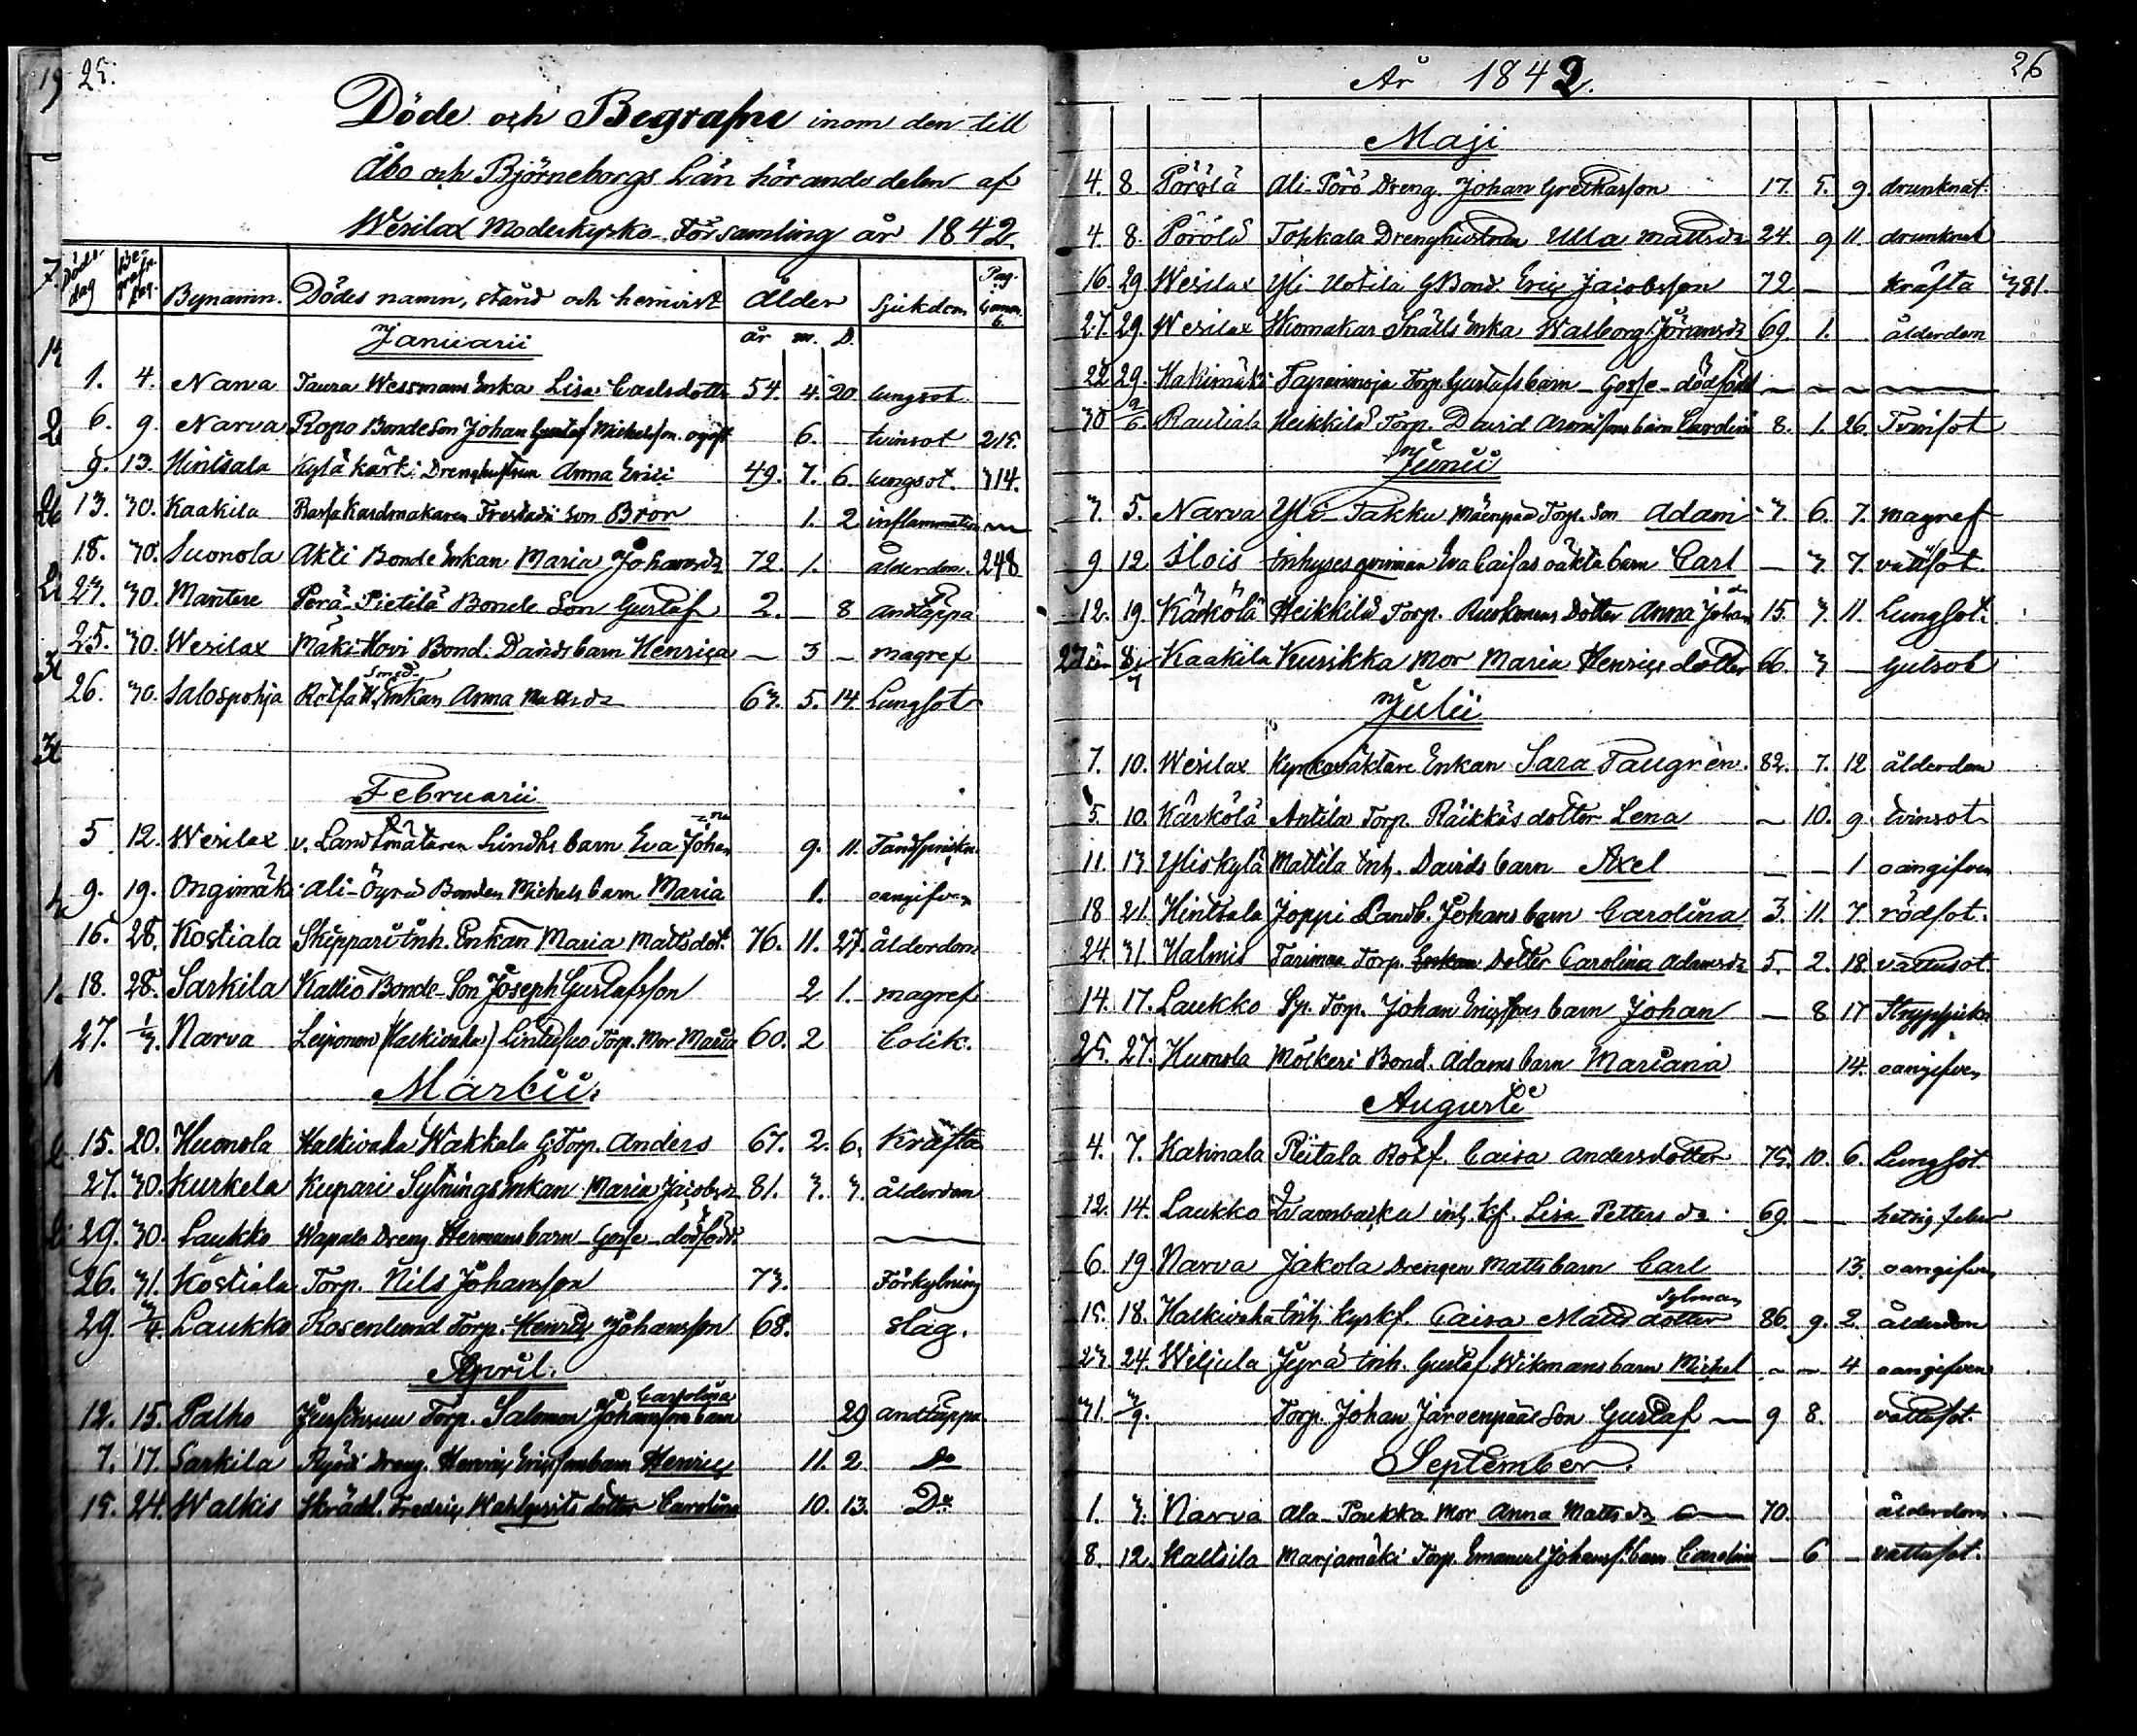 25.
Döde och Begrafne inom den till
Åbo och Björneborgs Län hörande delen af
Wesilax Moderkyrko-Församling år 1842.
Döds-dag Be-grafn. dag. Bynamn. Dödes namn, stånd och hemvist Ålder Sjukdom Pag.
år m. D.
Januarii
1. 4. Narva Taura Wessmans Enka Lisa Carlsdotter 54. 4. 20. lungsot.
6. 9. Narva Ropo Bonde Son Johan Gustaf Michelsson 6. tvinsot 215.
9. 13. Hintsala Kyläkärki Drenghustrun Anna Erici 49. 7. 6. lungsot. 314.
13. 30. Kaakila Kardmakaren Son Bror 1. 2 inflammation
18. 30. Suonola Akti Bonde Enkan Maria Johansdr 72. 1. ålderdom. 248
23. 30. Mantere Perä-Pietilä Bonde Son Gustaf 2. — 8 andtäppa
25. 30. Wesilax Mäki-Hovi Bond. Davids barn Henrica — 3 — magref
26. 30. Salospohja Smed Enkan Anna Mattsdr 63. 5. 14. Lungsot
Februarii
5 12. Wesilax v. Landtmätaren Lindhs barn Eva Johan-na 9. 11. Tandsprickn.
9. 19. Ongimäki Ali-Öyrä Bonden Michels barn Maria 1. oangifven
16. 28. Kostiala Skippari Inh. Enkan Maria Mattsdot. 76. 11. 27. ålderdom
18. 28. Sarkila Kallio Bonde-Son Joseph Gustafsson 2 1. magref
27. 1/3. Narva (Halkivaha) Torp. Mor Maria 60. 2 Colik.
Martii.
15. 20. Huonola Halkivaha Wakkala G. Torp. Anders 67. 2. 6. Kräfta
27. 30. Kurkela Kupari Sytnings Enkan Maria Jacobsdr 81. 3. 3. ålderdom
29. 30. Laukko Wapalo Dreng Hermans barn Gosse dödfödd.
26. 31. Kostiala Torp. Nils Johansson 73. Förkylning
29. 3/4. Laukko Rosenlund Torp. Henric Johansson 68. slag.
April.
12. 15. Palho Torp. Salomon Johanssons barn Carolina 29 andtäppa
7. 17. Sarkila Dreng. Henric Ericssons barn Henric 11. 2. Do
15. 24. Walkis Skrädd. Fredric Wahlqvists dotter Carolina 10. 13. Do
År 1842. 26
Maji
4. 8. Pörölä Ali-Pörö Dreng. Johan Grethasson 17. 5. 9. drunknat.
4. 8. Pörölä Topkala Drenghustrun Ulla Mattsdr 24. 9 11. drunknat
16. 29. Wesilax Yli-Uotila GBond. Eric Jacobsson 72. — kräfta 381.
27. 29. Wesilax Skomakar Smälls Enka Walborg Jöransdr 69. 1. ålderdom
22 29. Hakimäki Torp. Gustafs barn Gosse dödfödd
30 9/6. Rautiala Heikkilä Torp. David barn Carolina 8. 1. 26. Tvinsot
Junii
3. 5. Narva Yli-Takku Mäenpää Torp. Son Adam 3. 6. 7. magref
9 12 Ilois Inhyses qvinnan Eva Caisas oäkta barn Carl — 3. 7. vattusot
12. 19. Kärkölä Heikkilä Torp. Ruohonens Dotter Anna Johan 15. 3. 11. Lungsot.
8/7 Kaakila Kurikka Mor Maria Henrics dotter 66. 3 — Gulsot
Julii
7. 10. Wesilax Kyrkoväktare Enkan Sara Taugrèn. 82. 7. 12 ålderdom
5. 10. Kärkölä Antila Torp. Räikkäs dotter Lena — 10. 9. tvinsot
11. 13 Yliskylä Mattila Inh. Davids barn Axel — — 1 oangifven
18 21. Hintsala Joppi Landb. Johans barn Carolina 3. 11. 7. rödsot.
24. 31 Halmis Tarimaa Torp. Dotter Carolina Adamsdr 5. 2. 18. vattusot.
14. 17. Laukko Sp. Torp. Johan Ericssons barn Johan — 8 17 Strypsjuka
25. 27. Huonola Mölkeri Bond. Adams barn Mariana 14. oangifven
Augusti
4. 7. Katinala Pietala Rotf. Caisa Andersdotter 75. 10. 6. Lungsot.
12. 14. Laukko inh. Kf. Lisa Petters dr. 69 — — hetsig feber
6. 19 Narva Jakola Drengen Matts barn Carl 13. oangifven
15. 18. Halkivaha Inh. Kyrkf. Caisa Matts dotter Sylman 86. 9. 2. ålderdom
23. 24. Weljula Jyrä Inh. Gustaf Wikmans barn Michel 4 oangifven
31. 3/9. Torp. Johan Järvenpääs Son Gustaf 9 8. vattusot.
September.
1. 3. Narva Ala-Paukka Mor Anna Matts dr 70. ålderdom
8. 12. Kaltsila Marjamäki Torp. Emanuel Johanss. barn Carolina — 6 — vattusot.